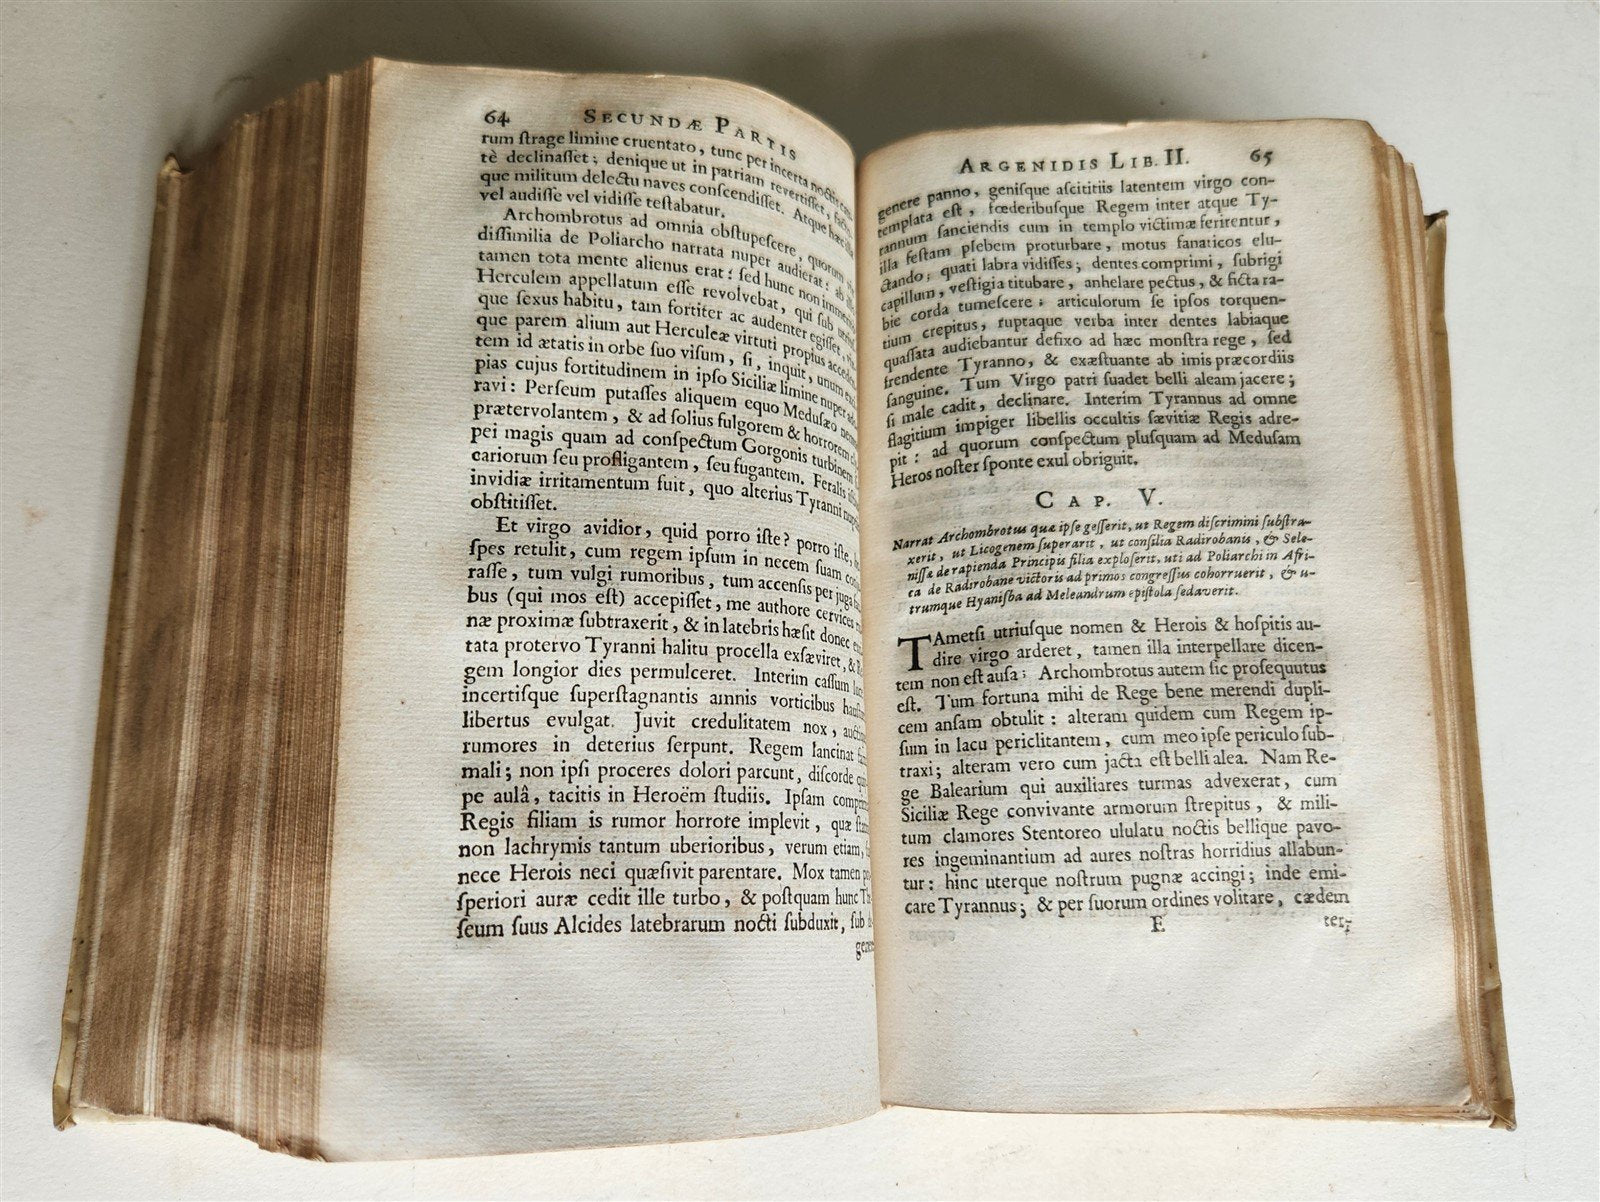 64 SECUNDÆ PARTIS
rum ſtrage limine cruentato, tunc per incerta noctis
tè declinaſſet; denique ut in patriam revertiſſet,
que militum delectu naves conſcendiſſet. Atque hæc
vel audiſſe vel vidiſſe teſtabatur.
Archombrotus ad omnia obſtupeſcere, quorum
diſſimilia de Poliarcho narrata nuper audierat: ab
tamen tota mente alienus erat: ſed hunc non immerito
Herculem appellatum eſſe revolvebat, qui ſub
que ſexus habitu, tam fortiter ac audenter egiſſet,
que parem alium aut Herculeæ virtuti propius
tem id ætatis in orbe ſuo viſum, ſi, inquit, unum
pias cujus fortitudinem in ipſo Siciliæ limine nuper
ravi: Perſeum putaſſes aliquem equo Meduſæo
prætervolantem, & ad ſolius fulgorem & horrorem
pei magis quam ad conſpectum Gorgonis turbinem
cariorum ſeu profligantem, ſeu fugantem. Feralis
invidiæ irritamentum fuit, quo alterius Tyranni
obſtitiſſet.
Et virgo avidior, quid porro iſte? porro iſte,
ſpes retulit, cum regem ipſum in necem ſuam
raſſe, tum vulgi rumoribus, tum accenſis per juga
bus (qui mos eſt) accepiſſet, me authore cervices
næ proximæ ſubtraxerit, & in latebris hæſit donec
tata protervo Tyranni halitu procella exſæviret, &
gem longior dies permulceret. Interim caſſum
incertiſque ſuperſtagnantis amnis vorticibus
libertus evulgat. Juvit credulitatem nox,
rumores in deterius ſerpunt. Regem lancinat
mali; non ipſi proceres dolori parcunt, diſcorde
pe aulâ, tacitis in Heroëm ſtudiis. Ipſam
Regis filiam is rumor horrore implevit, quæ
non lachrymis tantum uberioribus, verum etiam,
nece Herois neci quæſivit parentare. Mox tamen
ſperiori auræ cedit ille turbo, & poſtquam hunc
ſeum ſuus Alcides latebrarum nocti ſubduxit, ſub
ARGENIDIS LIB. II. 65
genere panno, geniſque aſcititiis latentem virgo con-
templata eſt, fœderibuſque Regem inter atque Ty-
rannum ſanciendis cum in templo victimæ ferirentur,
illa feſtam plebem proturbare, motus fanaticos elu-
ctando; quati labra vidiſſes; dentes comprimi, ſubrigi
capillum, veſtigia titubare, anhelare pectus, & ficta ra-
bie corda tumeſcere; articulorum ſe ipſos torquen-
tium crepitus, ruptaque verba inter dentes labiaque
quaſſata audiebantur defixo ad hæc monſtra rege, ſed
frendente Tyranno, & exæſtuante ab imis præcordiis
ſanguine. Tum Virgo patri ſuadet belli aleam jacere;
ſi male cadit, declinare. Interim Tyrannus ad omne
flagitium impiger libellis occultis ſævitiæ Regis adre-
pit: ad quorum conſpectum pluſquam ad Meduſam
Heros noſter ſponte exul obriguit.
CAP. V.
Narrat Archombrotus quæ ipſe geſſerit, ut Regem diſcrimini ſubſtra-
xerit, ut Licogenem ſuperarit, ut conſilia Radirobanis, & Sele-
niſſæ de rapienda Principis filia exploſerit, uti ad Poliarchi in Afri-
ca de Radirobane victoris ad primos congreſſus cohorruerit, & u-
trumque Hyaniſba ad Meleandrum epiſtola ſedaverit.
TAmetſi utriuſque nomen & Herois & hoſpitis au-
dire virgo arderet, tamen illa interpellare dicen-
tem non eſt auſa: Archombrotus autem ſic proſequutus
eſt. Tum fortuna mihi de Rege bene merendi dupli-
cem anſam obtulit: alteram quidem cum Regem ip-
ſum in lacu periclitantem, cum meo ipſe periculo ſub-
traxi; alteram vero cum jacta eſt belli alea. Nam Re-
ge Balearium qui auxiliares turmas advexerat, cum
Siciliæ Rege convivante armorum ſtrepitus, & mili-
tum clamores Stentoreo ululatu noctis bellique pavo-
res ingeminantium ad aures noſtras horridius allabun-
tur: hinc uterque noſtrum pugnæ accingi; inde emi-
care Tyrannus; & per ſuorum ordines volitare, cædem
E ter-